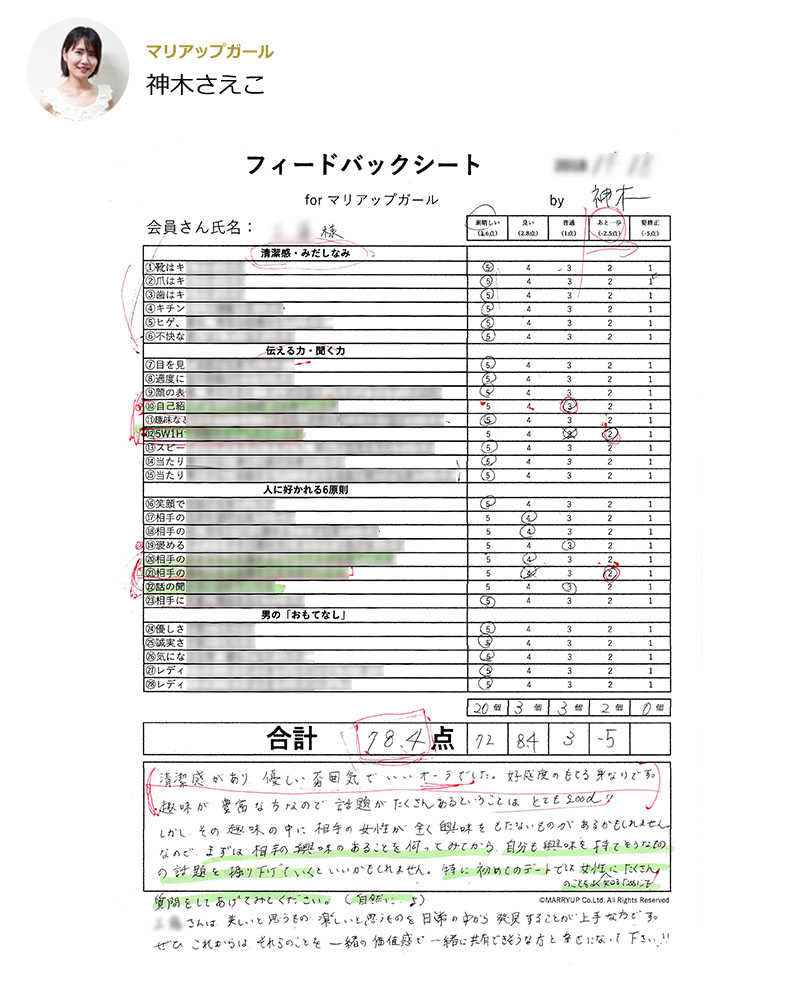 マリアップガール
神木さえこ
フィードバックシート
for マリアップガール
by 神木
会員さん氏名： 様
素晴しい (3.6点) 良い (2.8点) 普通 (1点) あと一歩 (-2.5点) 要修正 (-5点)
清潔感・みだしなみ
①靴はキ 5 4 3 2 1
②爪はキ 5 4 3 2 1
③歯はキ 5 4 3 2 1
④キチン 5 4 3 2 1
⑤ヒゲ、 5 4 3 2 1
⑥不快な 5 4 3 2 1
伝える力・聞く力
⑦目を見 5 4 3 2 1
⑧適度に 5 4 3 2 1
⑨顔の表 5 4 3 2 1
⑩自己紹 5 4 3 2 1
⑪趣味な 5 4 3 2 1
⑫5W1H 5 4 3 2 1
⑬スピー 5 4 3 2 1
⑭当たり 5 4 3 2 1
⑮当たり 5 4 3 2 1
人に好かれる6原則
⑯笑顔で 5 4 3 2 1
⑰相手の 5 4 3 2 1
⑱相手の 5 4 3 2 1
⑲褒める 5 4 3 2 1
⑳相手の 5 4 3 2 1
㉑相手の 5 4 3 2 1
㉒話の聞 5 4 3 2 1
㉓相手に 5 4 3 2 1
男の「おもてなし」
㉔優しさ 5 4 3 2 1
㉕誠実さ 5 4 3 2 1
㉖気にな 5 4 3 2 1
㉗レディ 5 4 3 2 1
㉘レディ 5 4 3 2 1
20個 3個 3個 2個 0個
合計 78.4点 72 8.4 3 -5
清潔感があり 優しい雰囲気でいいオーラでした。好感度のもてる身なりです。
趣味が豊富な方なので話題がたくさんあるということはとてもgood!!
しかし、その趣味の中に相手の女性が全く興味をもたないものがあるかもしれません
なので、まずは相手の興味のあることを伺ってみてから、自分も興味を持てそうなもの
の話題を掘り下げていくといいかもしれません。特に初めてのデートでは女性にたくさん
のことをよく知るためにも
質問をしてあげてみてください。(自然に…♪)
©MARRYUP Co.Ltd. All Rights Reserved
さんは美しいと思うもの 楽しいと思うものを日常の中から発見することが上手な方です。
ぜひこれからは それらのことを一緒の価値感で一緒に共有できそうな方と幸せになって下さい!!